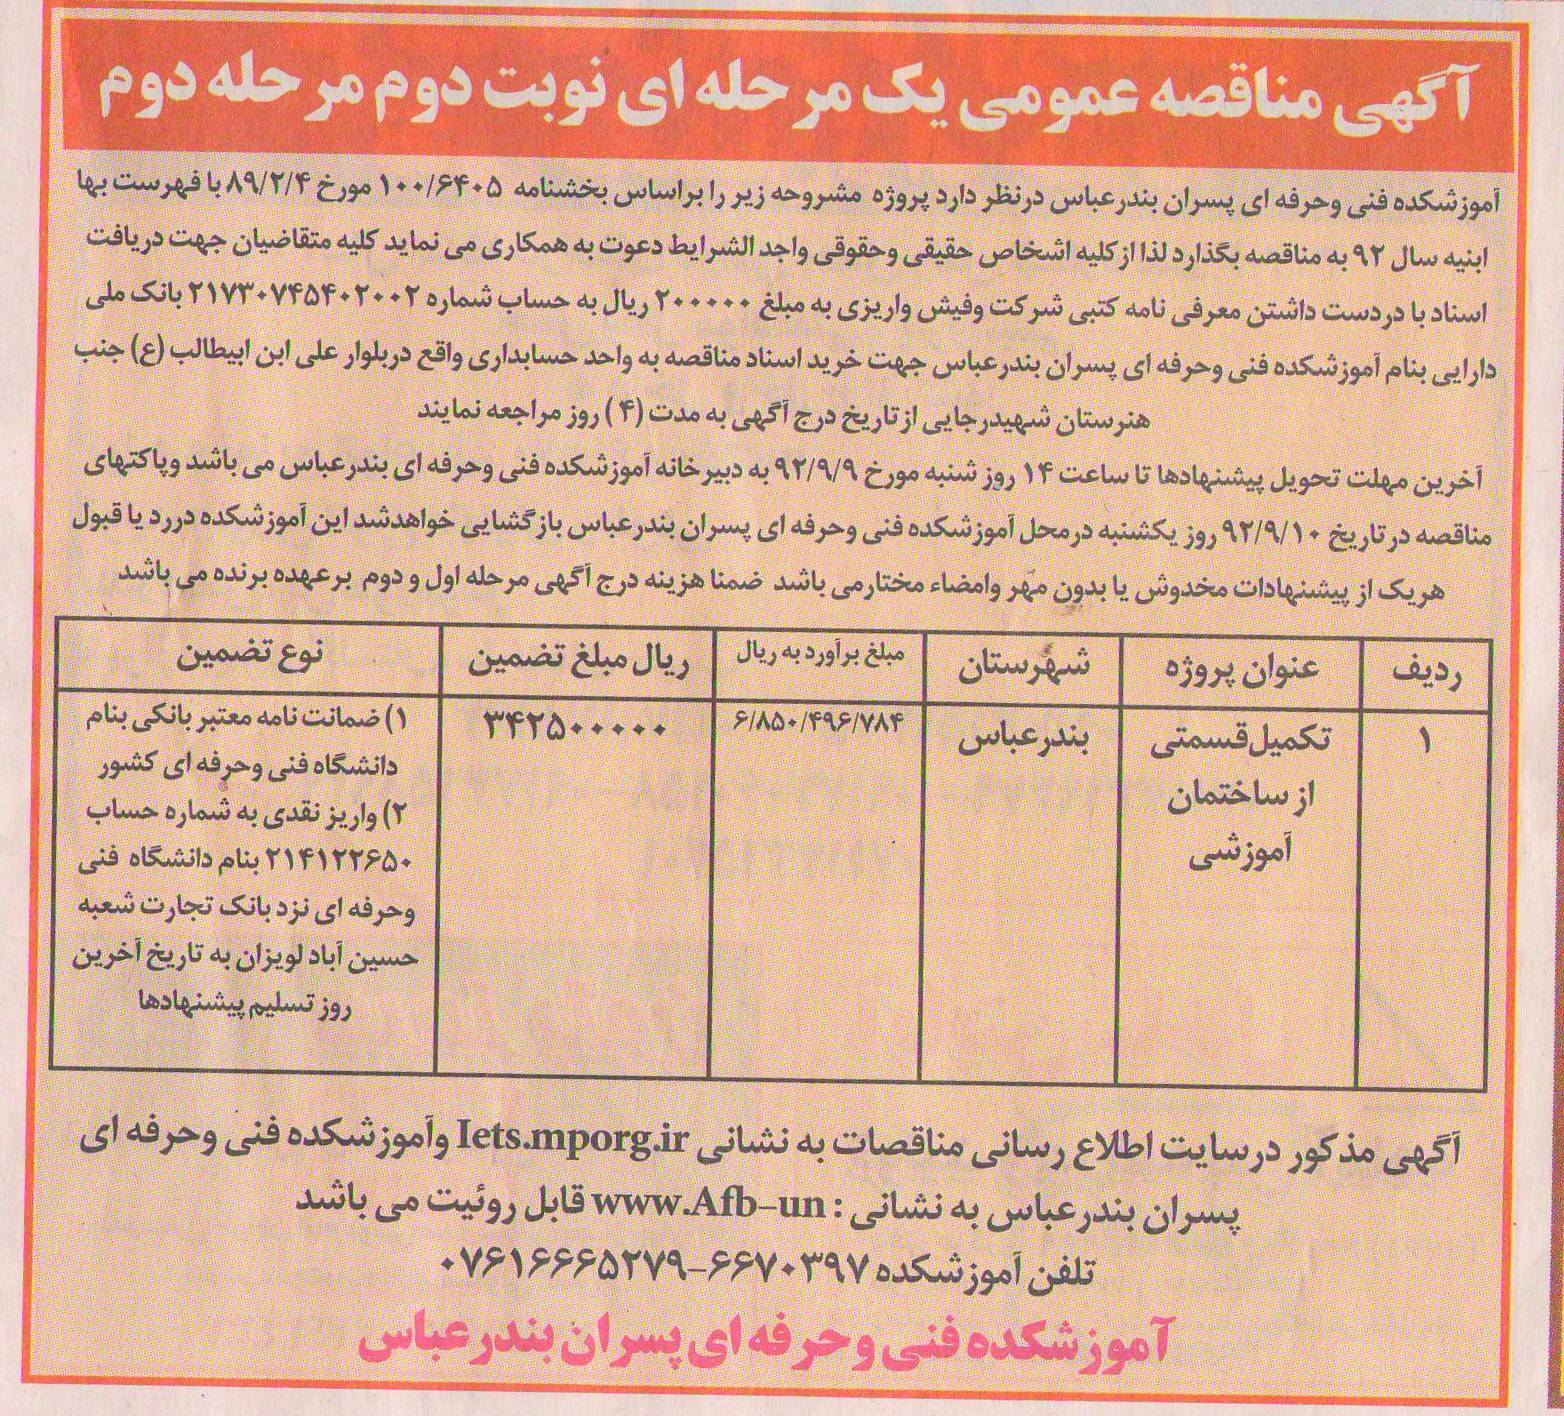 آگهی مناقصه عمومی یک مرحله ای نوبت دوم مرحله دوم
آموزشکده فنی وحرفه ای پسران بندرعباس درنظر دارد پروژه مشروحه زیر را براساس بخشنامه ۱۰۰/۶۴۰۵ مورخ ۸۹/۲/۴ با فهرست بها
ابنیه سال ۹۲ به مناقصه بگذارد لذا از کلیه اشخاص حقیقی وحقوقی واجد الشرایط دعوت به همکاری می نماید کلیه متقاضیان جهت دریافت
اسناد با دردست داشتن معرفی نامه کتبی شرکت وفیش واریزی به مبلغ ۲۰۰۰۰۰ ریال به حساب شماره ۲۱۷۳۰۷۴۵۴۰۲۰۰۲ بانک ملی
دارایی بنام آموزشکده فنی وحرفه ای پسران بندرعباس جهت خرید اسناد مناقصه به واحد حسابداری واقع دربلوار علی ابن ابیطالب (ع) جنب
هنرستان شهیدرجایی از تاریخ درج آگهی به مدت (۴) روز مراجعه نمایند
آخرین مهلت تحویل پیشنهادها تا ساعت ۱۴ روز شنبه مورخ ۹۲/۹/۹ به دبیرخانه آموزشکده فنی وحرفه ای بندرعباس می باشد وپاکتهای
مناقصه در تاریخ ۹۲/۹/۱۰ روز یکشنبه درمحل آموزشکده فنی وحرفه ای پسران بندرعباس بازگشایی خواهدشد این آموزشکده دررد یا قبول
هریک از پیشنهادات مخدوش یا بدون مهر وامضاء مختارمی باشد ضمنا هزینه درج آگهی مرحله اول و دوم برعهده برنده می باشد
ردیف
عنوان پروژه
شهرستان
مبلغ برآورد به ریال
ریال مبلغ تضمین
نوع تضمین
۱
تکمیل قسمتی
از ساختمان
آموزشی
بندرعباس
۶/۸۵۰/۴۹۶/۷۸۴
۳۴۲۵۰۰۰۰۰
۱) ضمانت نامه معتبر بانکی بنام
دانشگاه فنی وحرفه ای کشور
۲) واریز نقدی به شماره حساب
۲۱۴۱۲۲۶۵۰ بنام دانشگاه فنی
وحرفه ای نزد بانک تجارت شعبه
حسین آباد لویزان به تاریخ آخرین
روز تسلیم پیشنهادها
آگهی مذکور درسایت اطلاع رسانی مناقصات به نشانی Iets.mporg.ir وآموزشکده فنی وحرفه ای
پسران بندرعباس به نشانی : www.Afb-un قابل روئیت می باشد
تلفن آموزشکده ۶۶۷۰۳۹۷-۰۷۶۱۶۶۶۵۲۷۹
آموزشکده فنی وحرفه ای پسران بندرعباس